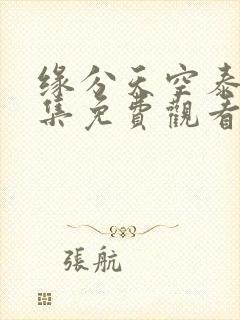 缘分天空泰
集免費觀看
張航